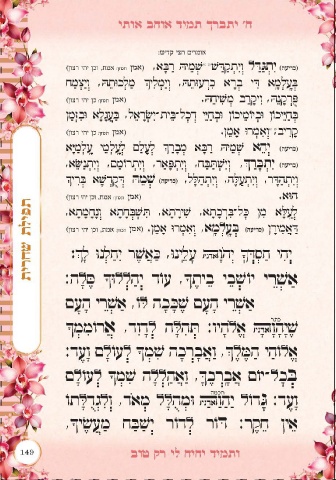 ה' יתברך תמיד אוהב אותי
אומרים חצי קדיש:
(כריעה) יִתְגַּדַּל וְיִתְקַדַּשׁ שְׁמֵהּ רַבָּא. (אמן
בְּעָלְמָא דִּי בְרָא כִרְעוּתֵהּ, וְיַמְלִיךְ מַלְכוּתֵהּ, וְיַצְמַח
פֻּרְקָנֵהּ, וִיקָרֵב מְשִׁיחֵהּ. (אמן
בְּחַיֵּיכוֹן וּבְיוֹמֵיכוֹן וּבְחַיֵּי דְכָל־בֵּית־יִשְׂרָאֵל, בַּעֲגָלָא וּבִזְמַן
קָרִיב, וְאִמְרוּ אָמֵן. (אמן
(כריעה) יְהֵא שְׁמֵהּ רַבָּא מְבָרַךְ לְעָלַם לְעָלְמֵי עָלְמַיָּא
(כריעה) יִתְבָּרַךְ, וְיִשְׁתַּבַּח, וְיִתְפָּאַר, וְיִתְרוֹמַם, וְיִתְנַשֵּׂא,
וְיִתְהַדָּר, וְיִתְעַלֶּה, וְיִתְהַלָּל, (כריעה) שְׁמֵהּ דְּקֻדְשָׁא בְּרִיךְ
הוּא. (אמן
לְעֵלָּא מִן כָּל־בִּרְכָתָא, שִׁירָתָא, תֻּשְׁבְּחָתָא וְנֶחֱמָתָא,
דַּאֲמִירָן (כריעה) בְּעָלְמָא, וְאִמְרוּ אָמֵן. (אמן
יְהִי חַסְדְּךָ יְהֹוָה עָלֵינוּ, כַּאֲשֶׁר יִחַלְנוּ לָךְ:
אַשְׁרֵי יוֹשְׁבֵי בֵיתֶךָ, עוֹד יְהַלְלוּךָ סֶּלָה:
אַשְׁרֵי הָעָם שֶׁכָּכָה לּוֹ, אַשְׁרֵי הָעָם
שֶׁיְהֹוָה אֱלֹהָיו: תְּהִלָּה לְדָוִד, אֲרוֹמִמְךָ
אֱלוֹהַי הַמֶּלֶךְ, וַאֲבָרְכָה שִׁמְךָ לְעוֹלָם וָעֶד:
בְּכָל־יוֹם אֲבָרְכֶךָּ, וַאֲהַלְלָה שִׁמְךָ לְעוֹלָם
וָעֶד: גָּדוֹל יְהֹוָה וּמְהֻלָּל מְאֹד, וְלִגְדֻלָּתוֹ
אֵין חֵקֶר: דּוֹר לְדוֹר יְשַׁבַּח מַעֲשֶׂיךָ,
תפילת שחרית
149
ותמיד יהיה לי רק טוב